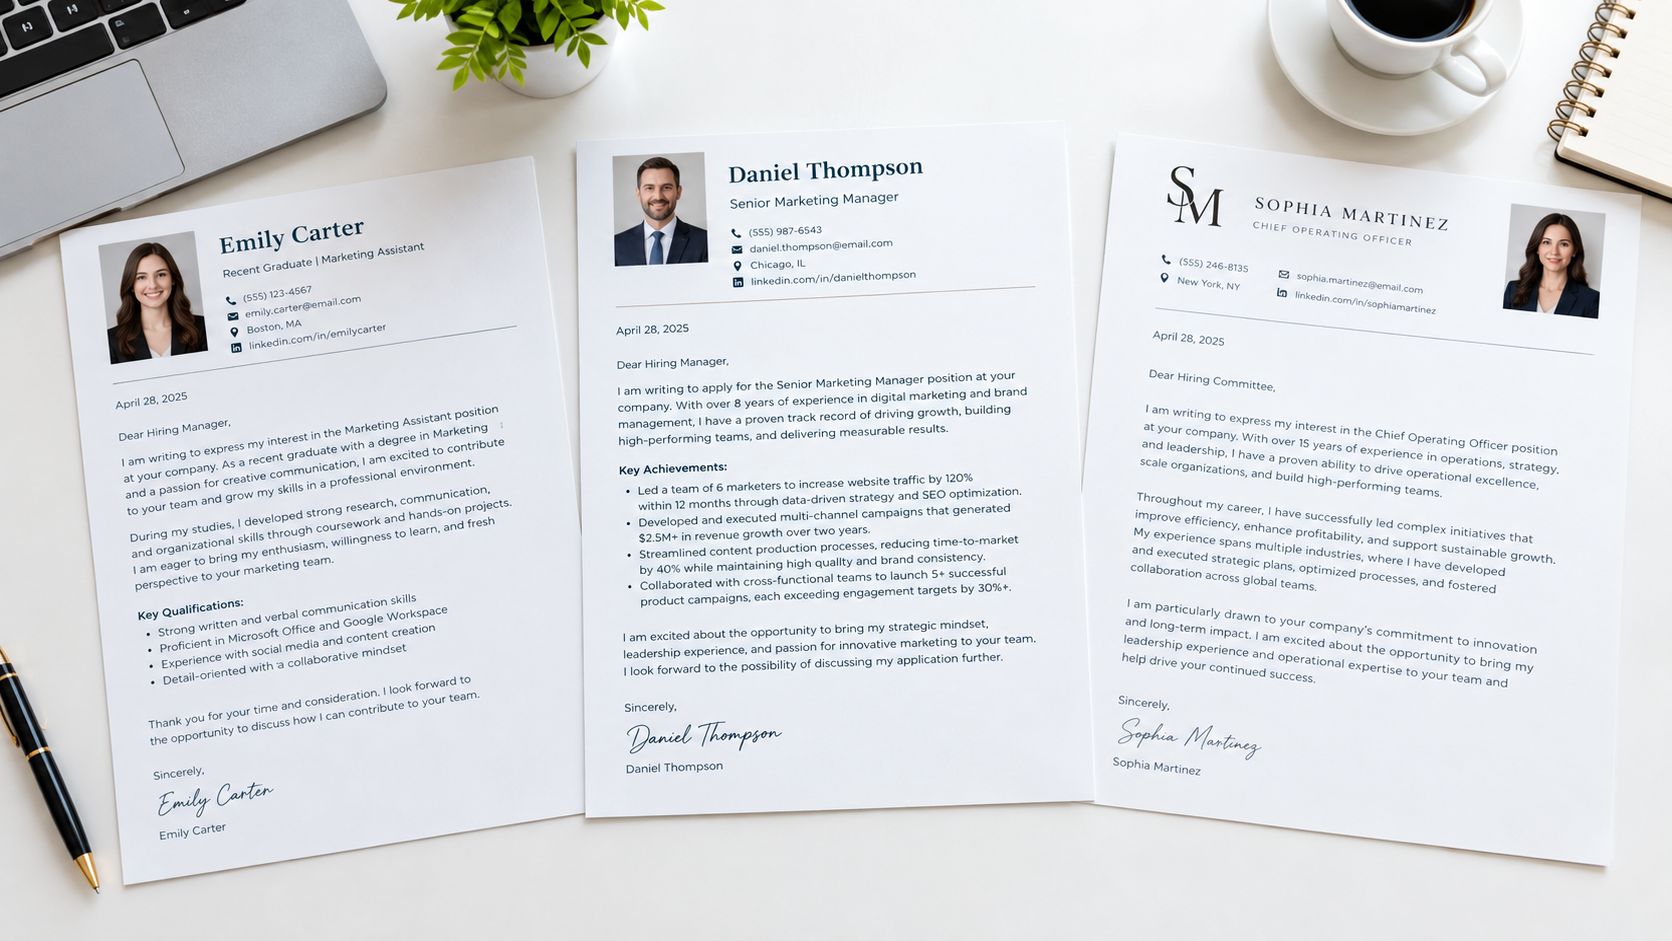 Emily Carter
Recent Graduate | Marketing Assistant
(555) 123-4567
emily.carter@email.com
Boston, MA
linkedin.com/in/emilycarter
April 28, 2025
Dear Hiring Manager,
I am writing to express my interest in the Marketing Assistant position
at your company. As a recent graduate with a degree in Marketing
and a passion for creative communication, I am excited to contribute
to your team and grow my skills in a professional environment.
During my studies, I developed strong research, communication,
and organizational skills through coursework and hands-on projects.
I am eager to bring my enthusiasm, willingness to learn, and fresh
perspective to your marketing team.
Key Qualifications:
• Strong written and verbal communication skills
• Proficient in Microsoft Office and Google Workspace
• Experience with social media and content creation
• Detail-oriented with a collaborative mindset
Thank you for your time and consideration. I look forward to
the opportunity to discuss how I can contribute to your team.
Sincerely,
Emily Carter
Emily Carter
Daniel Thompson
Senior Marketing Manager
(555) 987-6543
daniel.thompson@email.com
Chicago, IL
linkedin.com/in/danielthompson
April 28, 2025
Dear Hiring Manager,
I am writing to apply for the Senior Marketing Manager position at your
company. With over 8 years of experience in digital marketing and brand
management, I have a proven track record of driving growth, building
high-performing teams, and delivering measurable results.
Key Achievements:
• Led a team of 6 marketers to increase website traffic by 120%
within 12 months through data-driven strategy and SEO optimization.
• Developed and executed multi-channel campaigns that generated
$2.5M+ in revenue growth over two years.
• Streamlined content production processes, reducing time-to-market
by 40% while maintaining high quality and brand consistency.
• Collaborated with cross-functional teams to launch 5+ successful
product campaigns, each exceeding engagement targets by 30%+.
I am excited about the opportunity to bring my strategic mindset,
leadership experience, and passion for innovative marketing to your team.
I look forward to the possibility of discussing my application further.
Sincerely,
Daniel Thompson
Daniel Thompson
SM
SOPHIA MARTINEZ
CHIEF OPERATING OFFICER
(555) 246-8135
sophia.martinez@email.com
New York, NY
linkedin.com/in/sophiamartinez
April 28, 2025
Dear Hiring Committee,
I am writing to express my interest in the Chief Operating Officer position
at your company. With over 15 years of experience in operations, strategy,
and leadership, I have a proven ability to drive operational excellence,
scale organizations, and build high-performing teams.
Throughout my career, I have successfully led complex initiatives that
improve efficiency, enhance profitability, and support sustainable growth.
My experience spans multiple industries, where I have developed
and executed strategic plans, optimized processes, and fostered
collaboration across global teams.
I am particularly drawn to your company's commitment to innovation
and long-term impact. I am excited about the opportunity to bring my
leadership experience and operational expertise to your team and
help drive your continued success.
Sincerely,
Sophia Martinez
Sophia Martinez